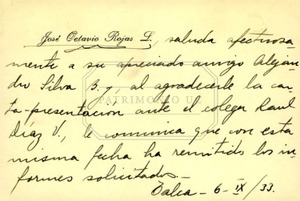 José Octavio Rojas L., saluda afectuosa-
mente a su apreciado amigo Alejan-
dro Silva B. y, al agradecerle la car-
ta-presentacion ante el colega Raul
Diaz V., le comunica que con esta
misma fecha ha remitido los in-
formes solicitados.-
Talca - 6 - IX / 33.
PATRIMONIO U